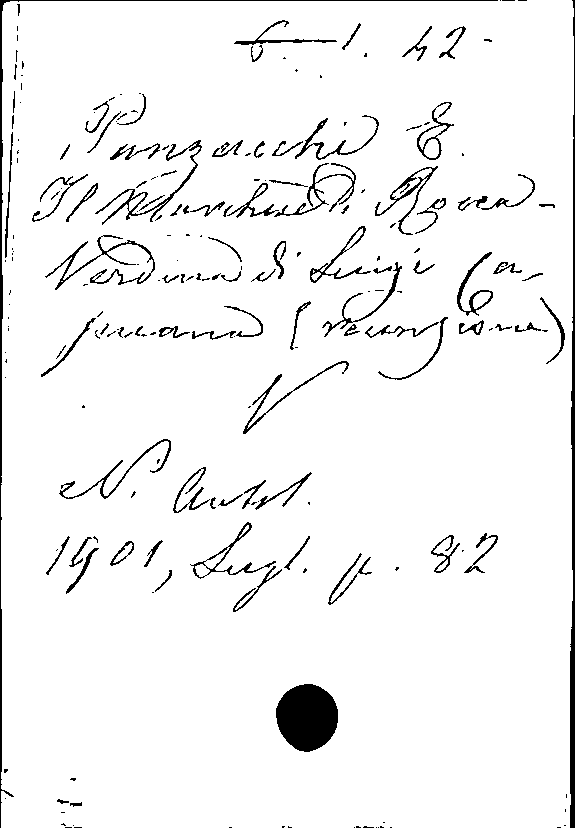 6 1. 42-
Panzacchi E.
Il Marchese di Rocca-
Verdina di Luigi Ca-
puana (recensione)
V
N. Antol.
1901, Lugl. p. 82